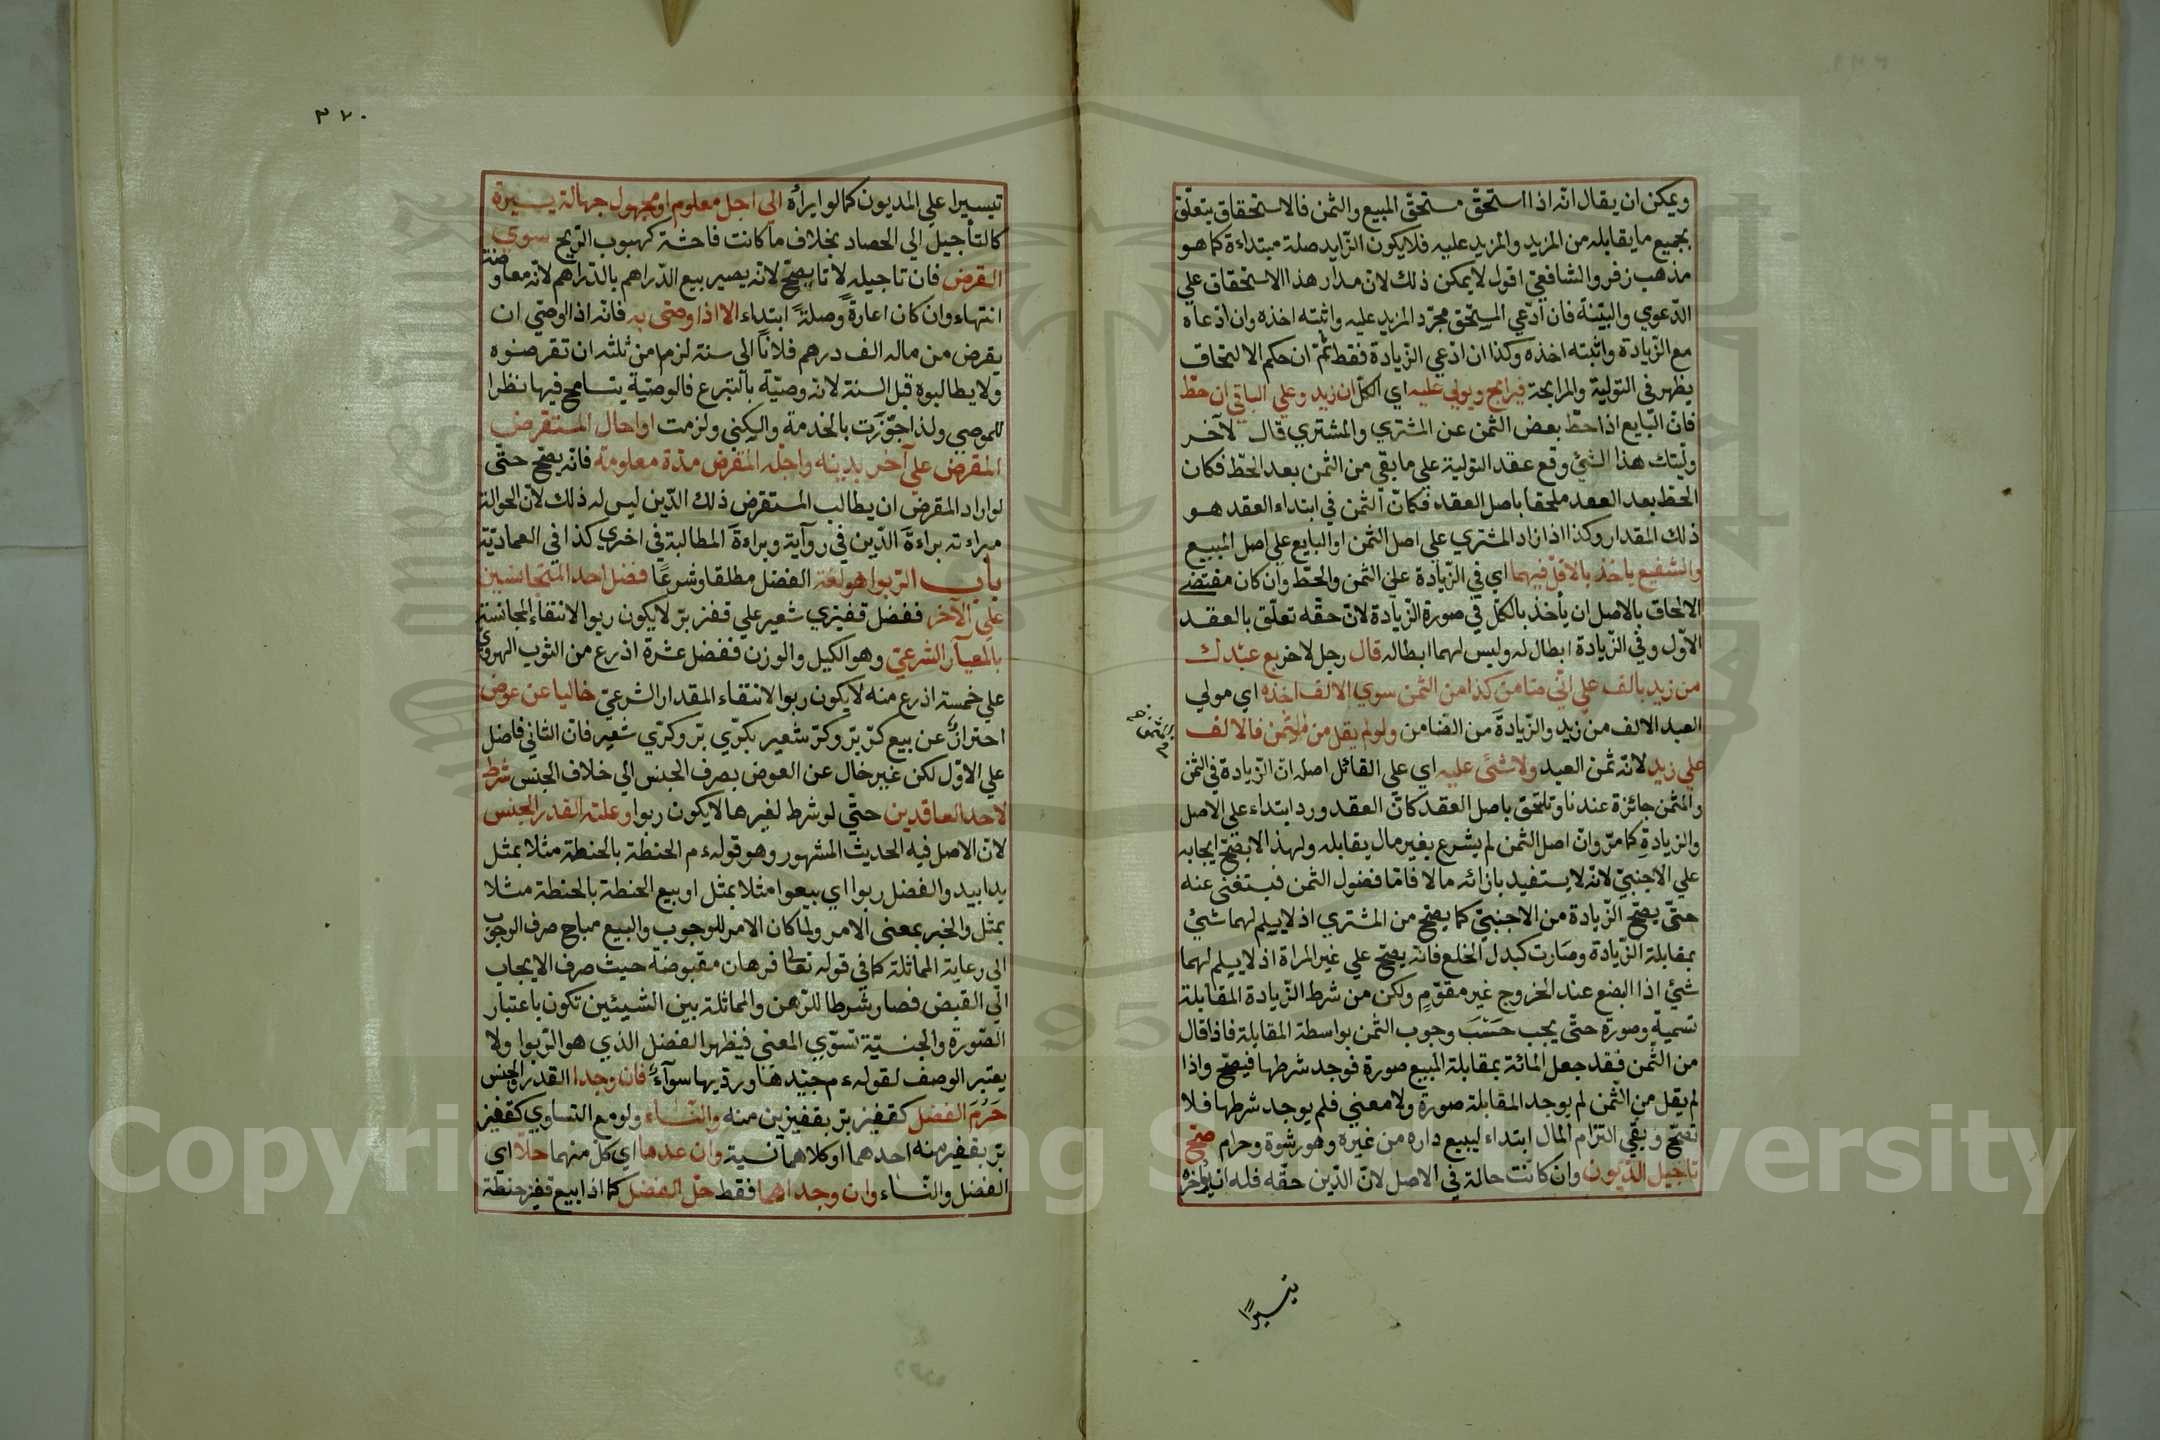 ويمكن ان يقال انه اذا استحق مستحق المبيع والثمن فالاستحقاق يتعلق
بجميع ما يقابله من المزيد والمزيد عليه فلا يكون الزايد صلة مبتداءة كما هو
مذهب زفر والشافعي اقول لا يمكن ذلك لان مدار هذا الاستحقاق علي
الدعوي والبينة فان ادعي المستحق مجرد المزيد عليه واثبته اخذه وان ادعاه
مع الزيادة واثبته اخذه وكذا ان ادعي الزيادة فقط ثم ان حكم الالتحاق
يظهر في التولية والمرابحة فيرابح ويولي عليه اي الكل ان زيد وعلي الباقي ان حط
فان البايع اذا حط بعض الثمن عن المشتري والمشتري قال لآخر
وليتك هذا الشئ وقع عقد التولية علي ما بقي من الثمن بعد الحط فكان
الحط بعد العقد ملحقا باصل العقد فكان الثمن في ابتداء العقد هو
ذلك المقدار وكذا اذا زاد المشتري علي اصل الثمن او البايع علي اصل المبيع
والشفيع ياخذ بالاقل فيهما اي في الزيادة علي الثمن والحط وان كان مقتضي
الالحاق بالاصل ان يأخذ بالكل في صورة الزيادة لان حقه تعلق بالعقد
الاول وفي الزيادة ابطال له وليس لهما ابطاله قال رجل لاخر بع عبدك
من زيد بالف علي اني ضامن كذا من الثمن سوي الالف اخذه اي مولي
العبد الالف من زيد والزيادة من الضامن ولو لم يقل من الثمن فالالف
علي زيد لانه ثمن العبد ولا شئ عليه اي علي القائل اصله ان الزيادة في الثمن
والمثمن جائزة عندنا وتلتحق باصل العقد كان العقد ورد ابتداء علي الاصل
والزيادة كما مر وان اصل الثمن لم يشرع بغير مال يقابله ولهذا لا يصح ايجابه
علي الاجنبي لانه لا يستفيد بازائه مالا فاما فضول الثمن فيستغني عنه
حتي يصح الزيادة من الاجنبي كما يصح من المشتري اذ لا يسلم لهما شئ
بمقابلة الزيادة وصارت كبدل الخلع فانه يصح علي غير المراة اذ لا يسلم لهما
شئ اذا البضع عند الخروج غير مقوم ولكن من شرط الزيادة المقابلة
تسمية وصورة حتي يجب حسب وجوب الثمن بواسطة المقابلة فاذا قال
من الثمن فقد جعل المائة بمقابلة المبيع صورة فوجد شرطها فيصح واذا
لم يقل من الثمن لم يوجد المقابلة صورة ولا معني فلم يوجد شرطها فلا
تصح وبقي التزام المال ابتداء ليبيع داره من غيره وهو رشوة وحرام صح
تاجيل الديون وان كانت حالة في الاصل لان الدين حقه فله ان يؤخره
تيسيرا
٣٧٠
تيسيرا علي المديون كما لو ابرأه الي اجل معلوم او مجهول جهالة يسيرة
كالتأجيل الي الحصاد بخلاف ما كانت فاحشة كهبوب الريح سوي
القرض فان تاجيله لا يصح لانه يصير بيع الدراهم بالدراهم لانه معاوضة
انتهاء وان كان اعارة وصلة ابتداء الا اذا وصي به فانه اذا اوصي ان
يقرض من ماله الف درهم فلانا الي سنة لزم من ثلثه ان تقرضوه
ولا يطالبوه قبل السنة لانه وصية بالتبرع فالوصية يتسامح فيها نظرا
للموصي ولذا جوزت بالخدمة والسكني ولزمت او احال المستقرض
المقرض علي آخر بدينه واجله المقرض مدة معلومة فانه يصح حتي
لو اراد المقرض ان يطالب المستقرض ذلك الدين ليس له ذلك لان الحوالة
مبراءته براءة الدين في رواية وبراءة المطالبة في اخري كذا في العمادية
باب الربوا هو لغة الفضل مطلقا وشرعا فضل احد المتجانسين
علي الآخر ففضل قفيزي شعير علي قفز بر لا يكون ربوا لانتفاء المجانسة
بالمعيار الشرعي وهو الكيل والوزن ففضل عشرة اذرع من الثوب الهروي
علي خمسة اذرع منه لا يكون ربوا لانتفاء المقدار الشرعي خاليا عن عوض
احتراز عن بيع كر بر وكر شعير بكري بر وكري شعير فان الثاني فاضل
علي الاول لكن غير خال عن العوض بصرف الجنس الي خلاف الجنس شرط
لاحد العاقدين حتي لو شرط لغيرهما لا يكون ربوا وعلته القدر والجنس
لان الاصل فيه الحديث المشهور وهو قوله ءم الحنطة بالحنطة مثلا بمثل
يدا بيد والفضل ربوا اي بيعوا مثلا بمثل او بيع الحنطة بالحنطة مثلا
بمثل والخبر بمعني الامر ولما كان الامر للوجوب والبيع مباح صرف الوجوب
الي رعاية المماثلة كما في قوله تعالي فرهان مقبوضة حيث صرف الايجاب
الي القبض فصار شرطا للرهن والمماثلة بين الشيئين تكون باعتبار
الصورة والجنسية تسوي المعني فيظهر الفضل الذي هو الربوا ولا
يعتبر الوصف لقوله ءم جيدها ورديها سواء فان وجدا القدر والجنس
حرم الفضل كقفيز بر بقفيزين منه والنساء ولو مع التساوي كقفيز
بر بقفيز منه احدهما او كلاهما نسية وان عدما اي كل منهما حلا اي
الفضل والنساء وان وجد احدهما فقط حل الفضل كما اذا بيع قفيز حنطة
Copyright © King Saud University